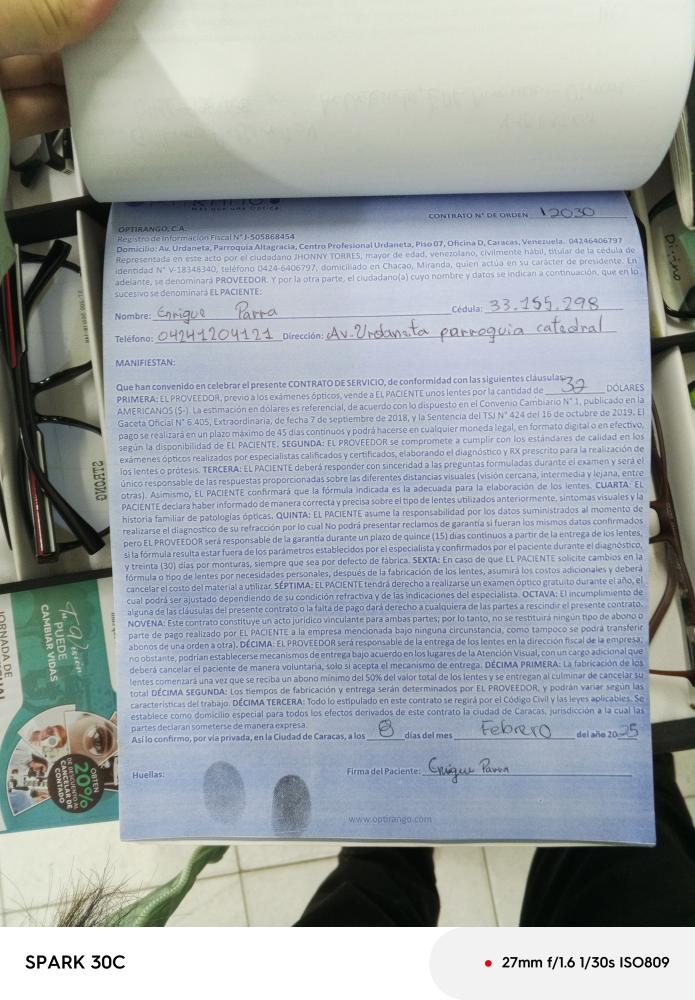 CONTRATO N° DE ORDEN 12030
OPTIRANGO, C.A.
Registro de Información Fiscal N° J-505868454
Domicilio: Av. Urdaneta, Parroquia Altagracia, Centro Profesional Urdaneta, Piso 07, Oficina D, Caracas, Venezuela. 04246406797
Representada en este acto por el ciudadano JHONNY TORRES, mayor de edad, venezolano, civilmente hábil, titular de la cédula de
identidad N° V-18348340, teléfono 0424-6406797, domiciliado en Chacao, Miranda, quien actúa en su carácter de presidente. En
adelante, se denominará PROVEEDOR. Y por la otra parte, el ciudadano(a) cuyo nombre y datos se indican a continuación, que en lo
sucesivo se denominará EL PACIENTE:
Nombre: Enrique Parra Cédula: 33.155.298
Teléfono: 04241204121 Dirección: Av. Urdaneta parroquia catedral
MANIFIESTAN:
Que han convenido en celebrar el presente CONTRATO DE SERVICIO, de conformidad con las siguientes cláusulas:
PRIMERA: EL PROVEEDOR, previo a los exámenes ópticos, vende a EL PACIENTE unos lentes por la cantidad de 32 DÓLARES
AMERICANOS ($-). La estimación en dólares es referencial, de acuerdo con lo dispuesto en el Convenio Cambiario N° 1, publicado en la
Gaceta Oficial N° 6.405, Extraordinaria, de fecha 7 de septiembre de 2018, y la Sentencia del TSJ N° 424 del 16 de octubre de 2019. El
pago se realizará en un plazo máximo de 45 días continuos y podrá hacerse en cualquier moneda legal, en formato digital o en efectivo,
según la disponibilidad de EL PACIENTE. SEGUNDA: EL PROVEEDOR se compromete a cumplir con los estándares de calidad en los
exámenes ópticos realizados por especialistas calificados y certificados, elaborando el diagnóstico y RX prescrito para la realización de
los lentes o prótesis. TERCERA: EL PACIENTE deberá responder con sinceridad a las preguntas formuladas durante el examen y será el
único responsable de las respuestas proporcionadas sobre las diferentes distancias visuales (visión cercana, intermedia y lejana, entre
otras). Asimismo, EL PACIENTE confirmará que la fórmula indicada es la adecuada para la elaboración de los lentes. CUARTA: EL
PACIENTE declara haber informado de manera correcta y precisa sobre el tipo de lentes utilizados anteriormente, síntomas visuales y la
historia familiar de patologías ópticas. QUINTA: EL PACIENTE asume la responsabilidad por los datos suministrados al momento de
realizarse el diagnostico de su refracción por lo cual No podrá presentar reclamos de garantía si fueran los mismos datos confirmados
pero EL PROVEEDOR será responsable de la garantía durante un plazo de quince (15) días continuos a partir de la entrega de los lentes,
si la fórmula resulta estar fuera de los parámetros establecidos por el especialista y confirmados por el paciente durante el diagnóstico,
y treinta (30) días por monturas, siempre que sea por defecto de fábrica. SEXTA: En caso de que EL PACIENTE solicite cambios en la
fórmula o tipo de lentes por necesidades personales, después de la fabricación de los lentes, asumirá los costos adicionales y deberá
cancelar el costo del material a utilizar. SÉPTIMA: EL PACIENTE tendrá derecho a realizarse un examen óptico gratuito durante el año, el
cual podrá ser ajustado dependiendo de su condición refractiva y de las indicaciones del especialista. OCTAVA: El incumplimiento de
alguna de las cláusulas del presente contrato o la falta de pago dará derecho a cualquiera de las partes a rescindir el presente contrato.
NOVENA: Este contrato constituye un acto jurídico vinculante para ambas partes; por lo tanto, no se restituirá ningún tipo de abono o
parte de pago realizado por EL PACIENTE a la empresa mencionada bajo ninguna circunstancia, como tampoco se podrá transferir
abonos de una orden a otra). DÉCIMA: EL PROVEEDOR será responsable de la entrega de los lentes en la dirección fiscal de la empresa;
no obstante, podrían establecerse mecanismos de entrega bajo acuerdo en los lugares de la Atención Visual, con un cargo adicional que
deberá cancelar el paciente de manera voluntaria, solo si acepta el mecanismo de entrega. DÉCIMA PRIMERA: La fabricación de los
lentes comenzará una vez que se reciba un abono mínimo del 50% del valor total de los lentes y se entregan al culminar de cancelar su
total DÉCIMA SEGUNDA: Los tiempos de fabricación y entrega serán determinados por EL PROVEEDOR, y podrán variar según las
características del trabajo. DÉCIMA TERCERA: Todo lo estipulado en este contrato se regirá por el Código Civil y las leyes aplicables. Se
establece como domicilio especial para todos los efectos derivados de este contrato la ciudad de Caracas, jurisdicción a la cual las
partes declaran someterse de manera expresa.
Así lo confirmo, por vía privada, en la Ciudad de Caracas, a los 8 días del mes Febrero del año 2025
Huellas: Firma del Paciente: Enrique Parra
www.optirango.com
STRONG
Tu Visión
PUEDE
CAMBIAR VIDAS
JORNADA DE
20%
DE DESCUENTO AL
CANCELAR DE
CONTADO
SPARK 30C
27mm f/1.6 1/30s ISO809